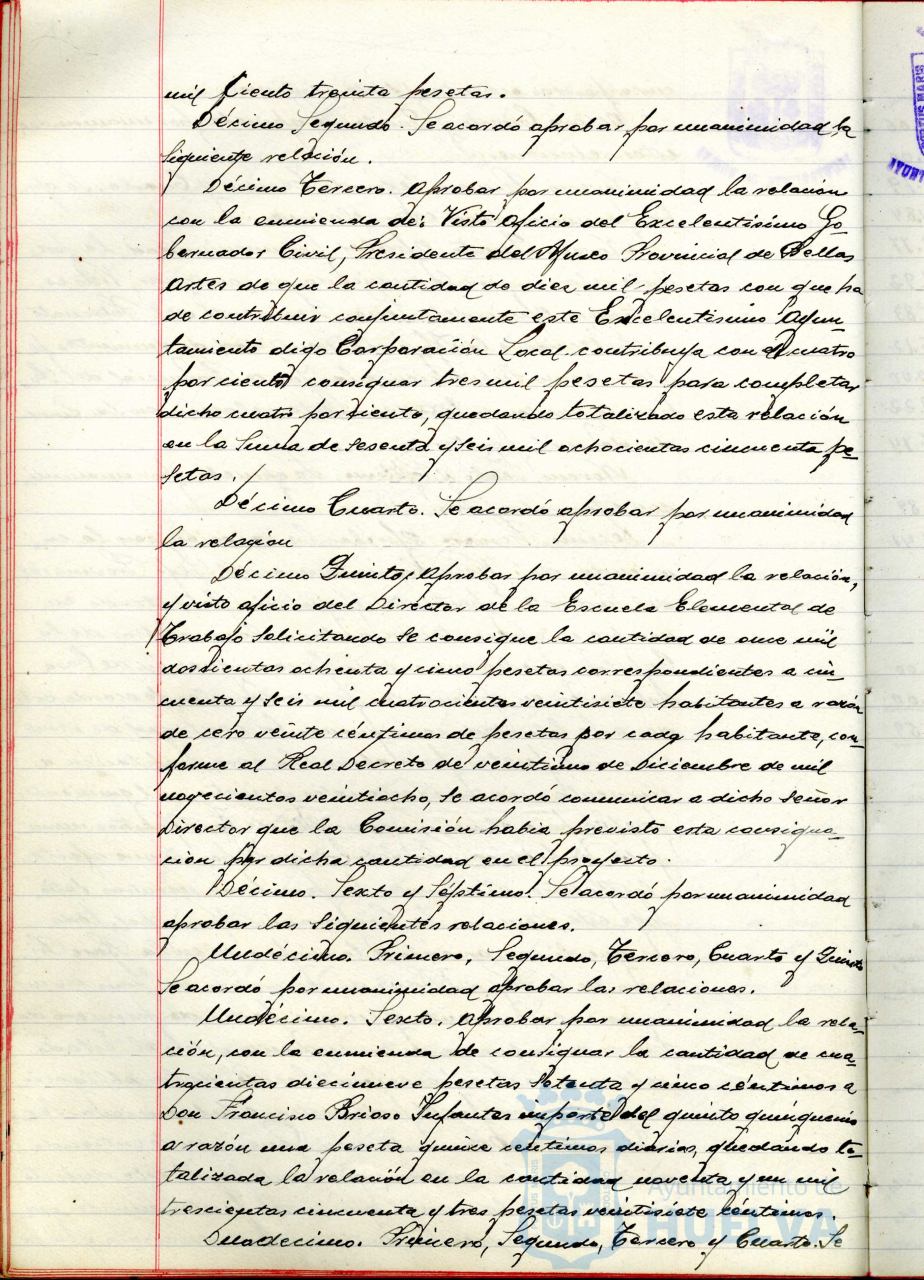 mil ciento treinta pesetas.
Décimo Segundo. Se acordó aprobar por unanimidad la
siguiente relación.
Décimo Tercero. Aprobar por unanimidad la relación
con la enmienda de: Visto oficio del Excelentísimo Go-
bernador Civil, Presidente del Museo Provincial de Bellas
Artes de que la cantidad de diez mil pesetas con que ha
de contribuir conjuntamente este Excelentisimo Ayun-
tamiento digo Corporación Local contribuya con el cuatro
por ciento consignar tres mil pesetas para completar
dicho cuatro por ciento, quedando totalizado esta relación
en la suma de sesenta y seis mil ochocientas cincuenta pe-
setas.
Décimo Cuarto. Se acordó aprobar por unanimidad
la relación
Décimo Quinto, Aprobar por unanimidad la relación,
y visto oficio del Director de la Escuela Elemental de
Trabajo solicitando se consigne la cantidad de once mil
doscientas ochenta y cinco pesetas correspondientes a cin-
cuenta y seis mil cuatrocientos veintisiete habitantes a razón
de cero veinte céntimos de pesetas por cada habitante, con-
forme al Real Decreto de veintiuno de Diciembre de mil
novecientos veintiocho, se acordó comunicar a dicho señor
Director que la Comisión habia previsto esta consigna-
cion por dicha cantidad en el proyecto.
Décimo. Sexto y Séptimo. Se acordó por unanimidad
aprobar las siguientes relaciones.
Undécimo. Primero, Segundo, Tercero, Cuarto y Quinto
Se acordó por unanimidad aprobar las relaciones.
Undécimo. Sexto. Aprobar por unanimidad la rela-
ción, con la enmienda de consignar la cantidad de cua-
trocientas diecinueve pesetas setenta y cinco céntimos a
Don Francisco Brioso Infantes importe del quinto quinquenio
a razón una peseta quince centimos diarios, quedando to-
talizada la relación en la cantidad noventa y un mil
trescientas cincuenta y tres pesetas veintisiete céntimos.
Duodecimo. Primero, Segundo, Tercero y Cuarto. Se
Ayuntamiento de
HUELVA